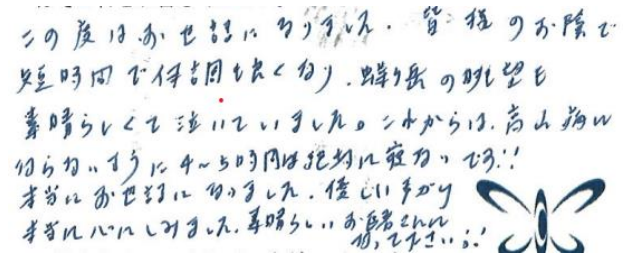 この度はお世話になりました。皆様のお陰で
短時間で体調も良くなり、蝶ヶ岳の眺望も
素晴らしくて泣いていました。これからは、高山病に
ならないように4〜5時間は絶対に寝ないです!!
本当にお世話になりました。優しい手がり
本当に心にしみました。素晴らしいお医者さんに
なって下さい!!